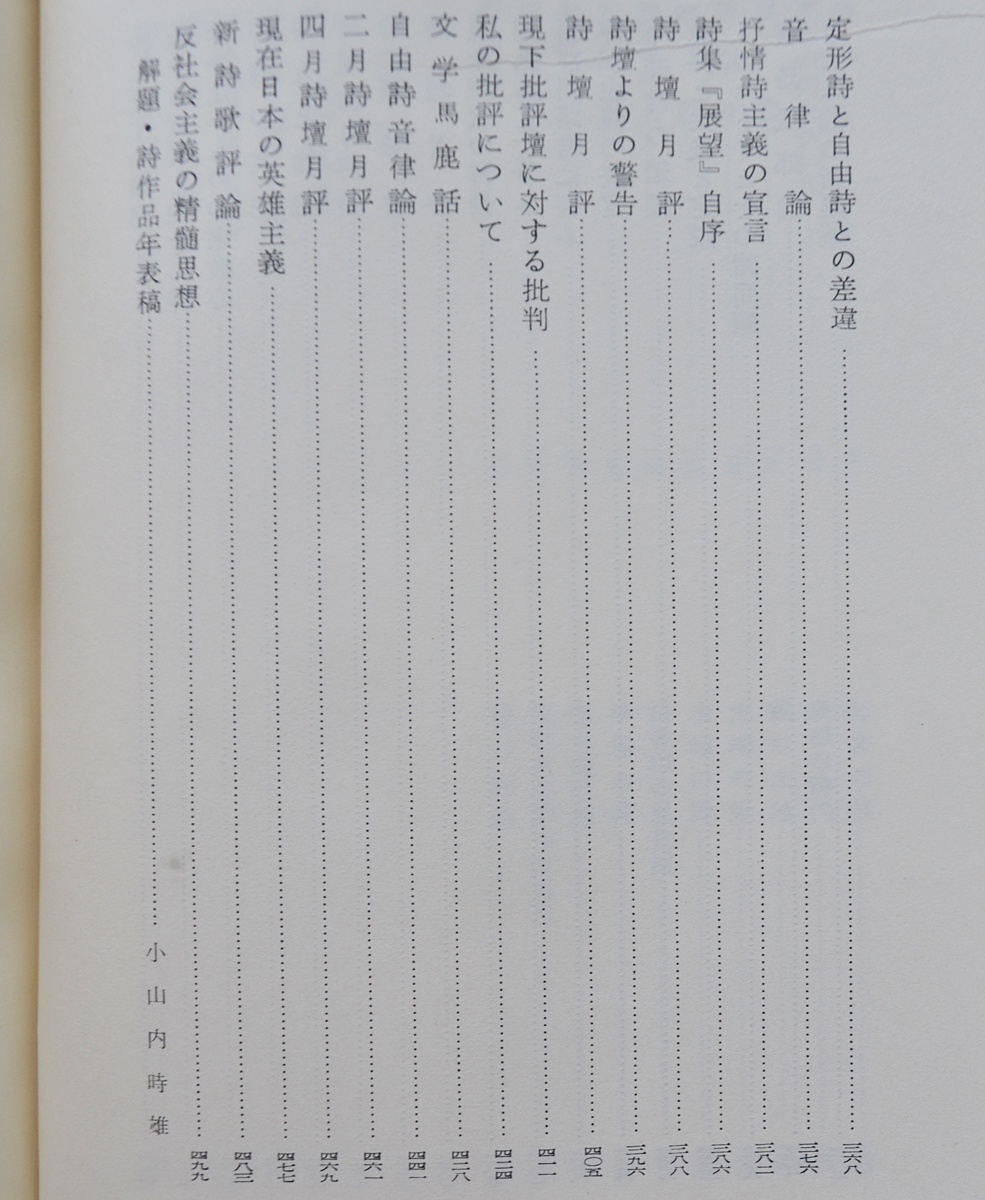 定形詩と自由詩との差違…三六八
音律論…三七六
抒情詩主義の宣言…三八二
詩集『展望』自序…三八六
詩壇月評…三八八
詩壇よりの警告…三九六
詩壇月評…四〇五
現下批評壇に対する批判…四一一
私の批評について…四二四
文学馬鹿話…四二八
自由詩音律論…四四一
二月詩壇月評…四六一
四月詩壇月評…四六九
現在日本の英雄主義…四七七
新詩歌評論…四八三
反社会主義の精髄思想…四九九
解題・詩作品年表稿…小山内時雄